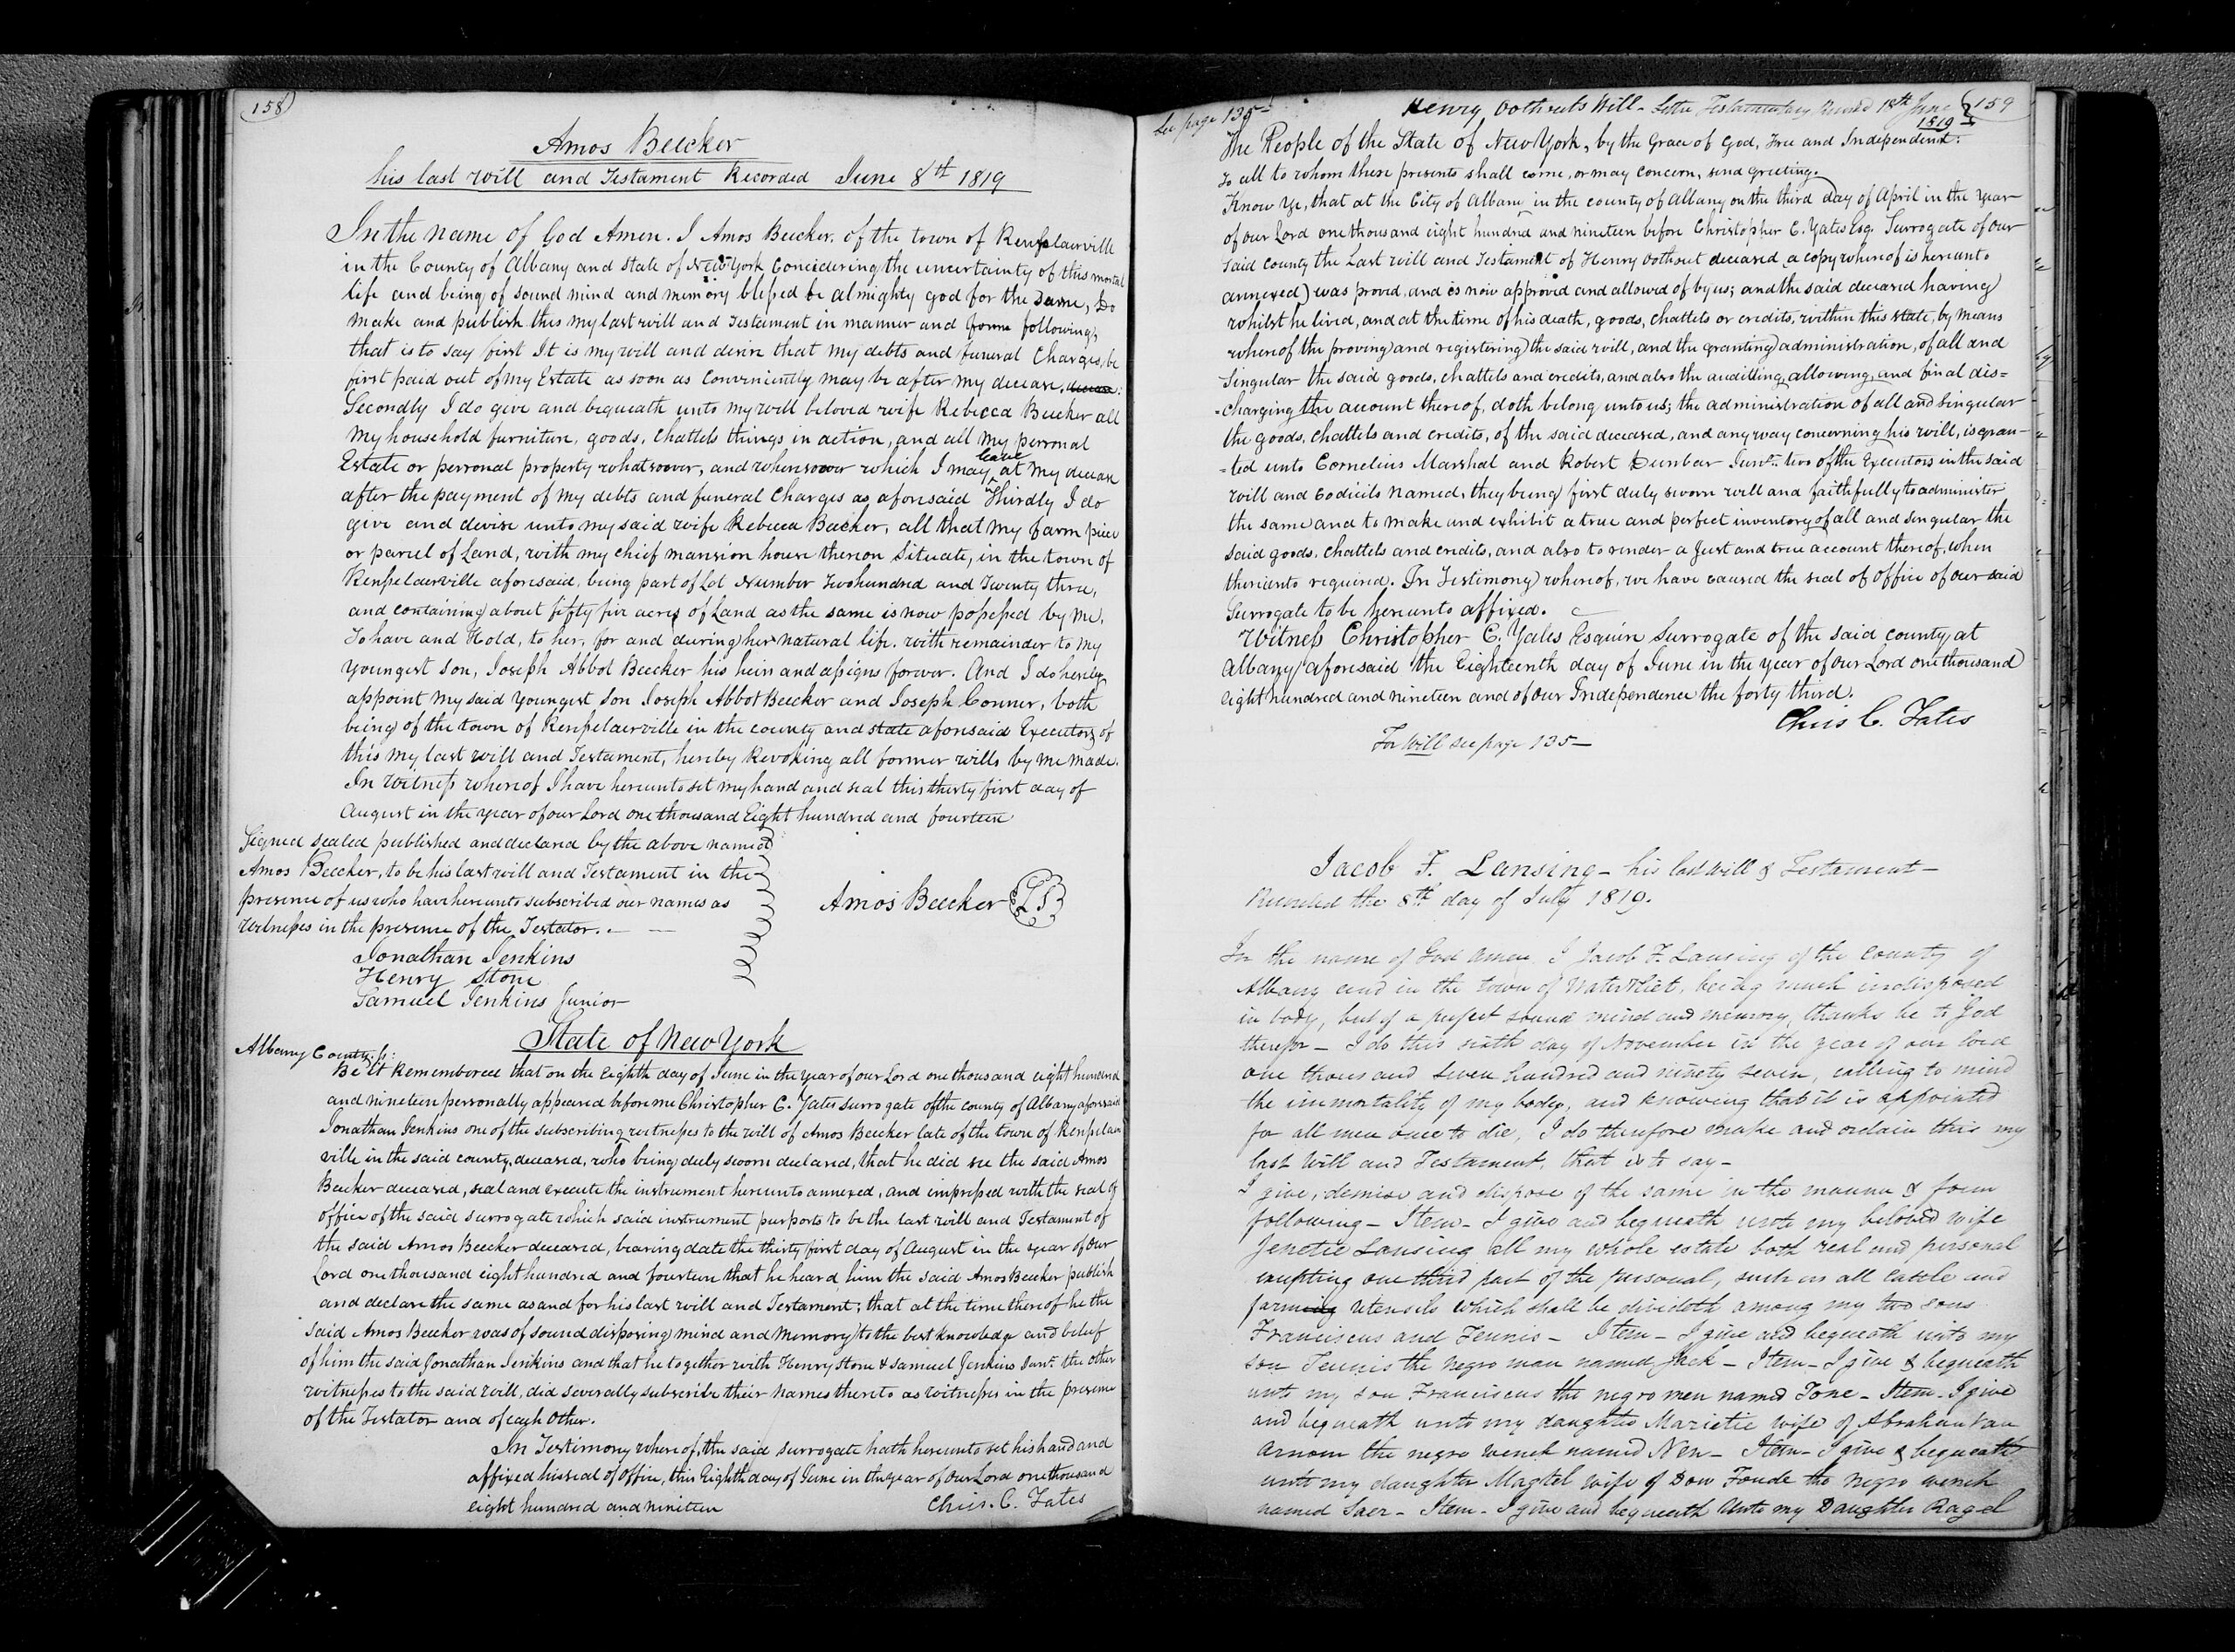 158
Amos Beecker
his last will and Testament Recorded June 8th 1819
In the name of God Amen. I Amos Beecker. of the town of Rensselaerville
in the County of Albany and State of New York, Considering the uncertainty of this mortal
life and being of sound mind and memory blessed be almighty god for the same, Do
make and publish this my last will and Testament in manner and forme following,
that is to say first It is my will and desire that my debts and funeral Charges, be
first paid out of my Estate as soon as Conveniently may be after my decease.
Secondly I do give and bequeath unto my well beloved wife Rebecca Beecker all
my household furniture, goods, Chattels things in action, and all my personal
Estate or personal property whatsoever, and wheresoever which I may leave at my decease
after the payment of my debts and funeral Charges as aforesaid Thirdly I do
give and devise unto my said wife Rebecca Beecker, all that my farm piece
or parcel of Land, with my chief mansion house thereon Situate, in the town of
Rensselaerville aforesaid, being part of Lot Number Two hundred and Twenty three,
and containing about fifty five acres of Land as the same is now possessed by me,
To have and Hold, to her, for and during her natural life. with remainder to my
youngest son, Joseph Abbot Beecker his heirs and assigns forever. And I do hereby
appoint my said youngest son Joseph Abbot Beecker and Joseph Conner, both
being of the town of Rensselaerville in the county and state aforesaid Executors of
this my last will and Testament, hereby Revoking all former wills by me made.
In Witness whereof I have hereunto set my hand and seal this thirty first day of
August in the year of our Lord one thousand Eight hundred and fourteen
Signed sealed published and declared by the above named
Amos Beecker, to be his last will and Testament in the
presence of us who have hereunto subscribed our names as
witnesses in the presence of the Testator.
Amos Beecker LS
Jonathan Jenkins
Henry Stone
Samuel Jenkins Junior
State of New York
Albany County. ss:
Be it Remembered that on the Eighth day of June in the year of our Lord one thousand eight hundred
and nineteen personally appeared before me Christopher C. Yates Surrogate of the county of Albany aforesaid
Jonathan Jenkins one of the subscribing witnesses to the will of Amos Beecker late of the town of Rensselaer
ville in the said county, deceased, who being duly sworn declared, that he did see the said Amos
Beecker deceased, seal and execute the instrument hereunto annexed, and impressed with the seal of
office of the said surrogate which said instrument purports to be the last will and Testament of
the said Amos Beecker deceased, bearing date the thirty first day of August in the year of our
Lord one thousand eight hundred and fourteen that he heard him the said Amos Beecker publish
and declare the same as and for his last will and Testament; that at the time thereof he the
said Amos Beecker was of sound disposing mind and memory to the best knowledge and belief
of him the said Jonathan Jenkins and that he together with Henry Stone & Samuel Jenkins Junr. the other
witnesses to the said will, did severally subscribe their names thereto as witnesses in the presence
of the Testator and of each other.
In Testimony whereof, the said surrogate hath hereunto set his hand and
affixed his seal of office, this Eighth day of June in the year of our Lord one thousand
eight hundred and nineteen Chris. C. Yates
See page 135 Henry Oothouts Will - Letter Testamentary Record 18th June 1819 159
The People of the State of New York, by the Grace of God, Free and Independent:
To all to whom these presents shall come, or may concern, send greeting.
Know Ye, that at the City of Albany in the county of Albany on the third day of April in the year
of our Lord one thousand eight hundred and nineteen before Christopher C. Yates Esq. Surrogate of our
said county the Last will and Testament of Henry Oothout deceased (a copy whereof is hereunto
annexed) was proved, and is now approved and allowed of by us; and the said deceased having
whilst he lived, and at the time of his death, goods, chattels or credits, within this state, by means
whereof the proving and registering the said will, and the granting administration, of all and
Singular the said goods, chattels and credits, and also the auditing allowing, and final dis=
=charging the account thereof, doth belong unto us; the administration of all and singular
the goods, chattels and credits, of the said deceased, and any way concerning his will, is gran-
=ted unto Cornelius Marshal and Robert Dunbar Junr. two of the Executors in the said
will and Codicils named, they being first duly sworn well and faithfully to administer
the same and to make and exhibit a true and perfect inventory of all and singular the
said goods, chattels and credits, and also to render a just and true account thereof, when
thereunto required. In Testimony whereof, we have caused the seal of office of our said
Surrogate to be hereunto affixed.
Witness Christopher C. Yates Esquire Surrogate of the said county at
Albany aforesaid the Eighteenth day of June in the year of our Lord one thousand
eight hundred and nineteen and of our Independence the forty third.
Chris C. Yates
For Will see page 135-
Jacob F. Lansing - his last will & Testament -
Recorded the 8th day of July 1819.
In the name of God Amen, I Jacob F. Lansing of the county of
Albany and in the town of Watervliet, being much indisposed
in body, but of a perfect sound mind and memory, thanks be to God
therefor - I do this sixth day of November in the year of our Lord
one thousand seven hundred and ninety seven, calling to mind
the immortality of my body, and knowing that it is appointed
for all men once to die, I do therefore make and ordain this my
last Will and Testament, that is to say -
I give, demise and dispose of the same in the manner & form
following - Item - I give and bequeath unto my beloved wife
Jenetie Lansing all my whole estate both real and personal
excepting one third part of the personal, such as all cattle and
farming utensils which shall be divideth among my two sons
Franciscus and Teunis - Item - I give and bequeath unto my
son Teunis the negro man named Jack - Item - I give & bequeath
unto my son Franciscus the negro men named Tone - Item - I give
and bequeath unto my daughter Marietie wife of Abraham Van
Arnom the negro wench named Nen - Item - I give & bequeath
unto my daughter Magtel wife of Dow Fonde the negro wench
named Saer - Item - I give and bequeath unto my Daughter Ragel